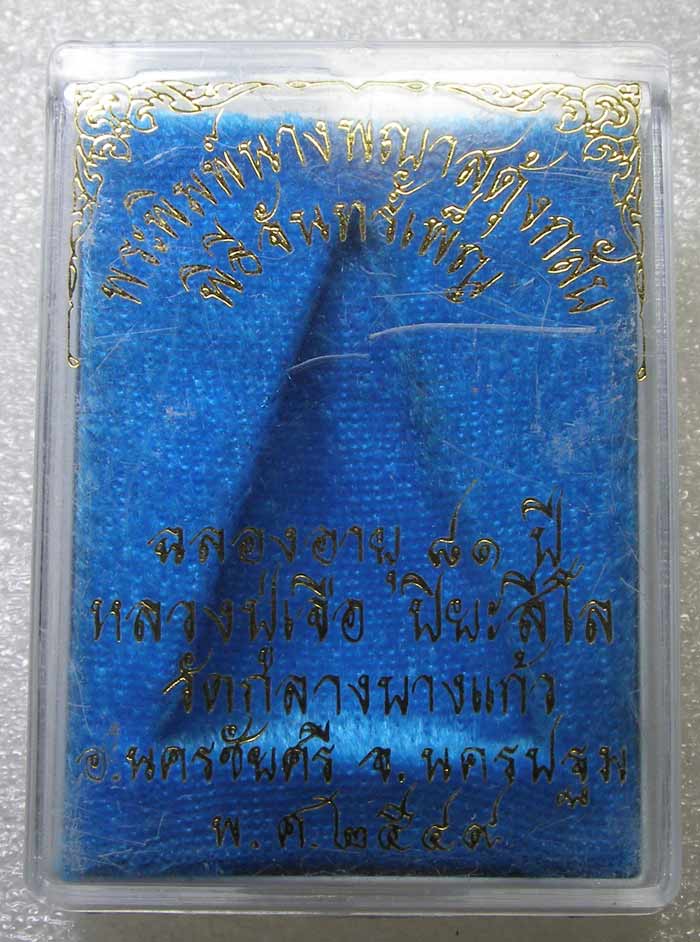 พระพิมพ์นางพญาสตุ้งกลับ
พิธีจันทร์เพ็ญ
ฉลองอายุ ๘๑ ปี
หลวงปู่เจือ ปิยะสีโล
วัดกลางบางแก้ว
อ.นครชัยศรี จ.นครปฐม
พ.ศ.๒๕๔๙